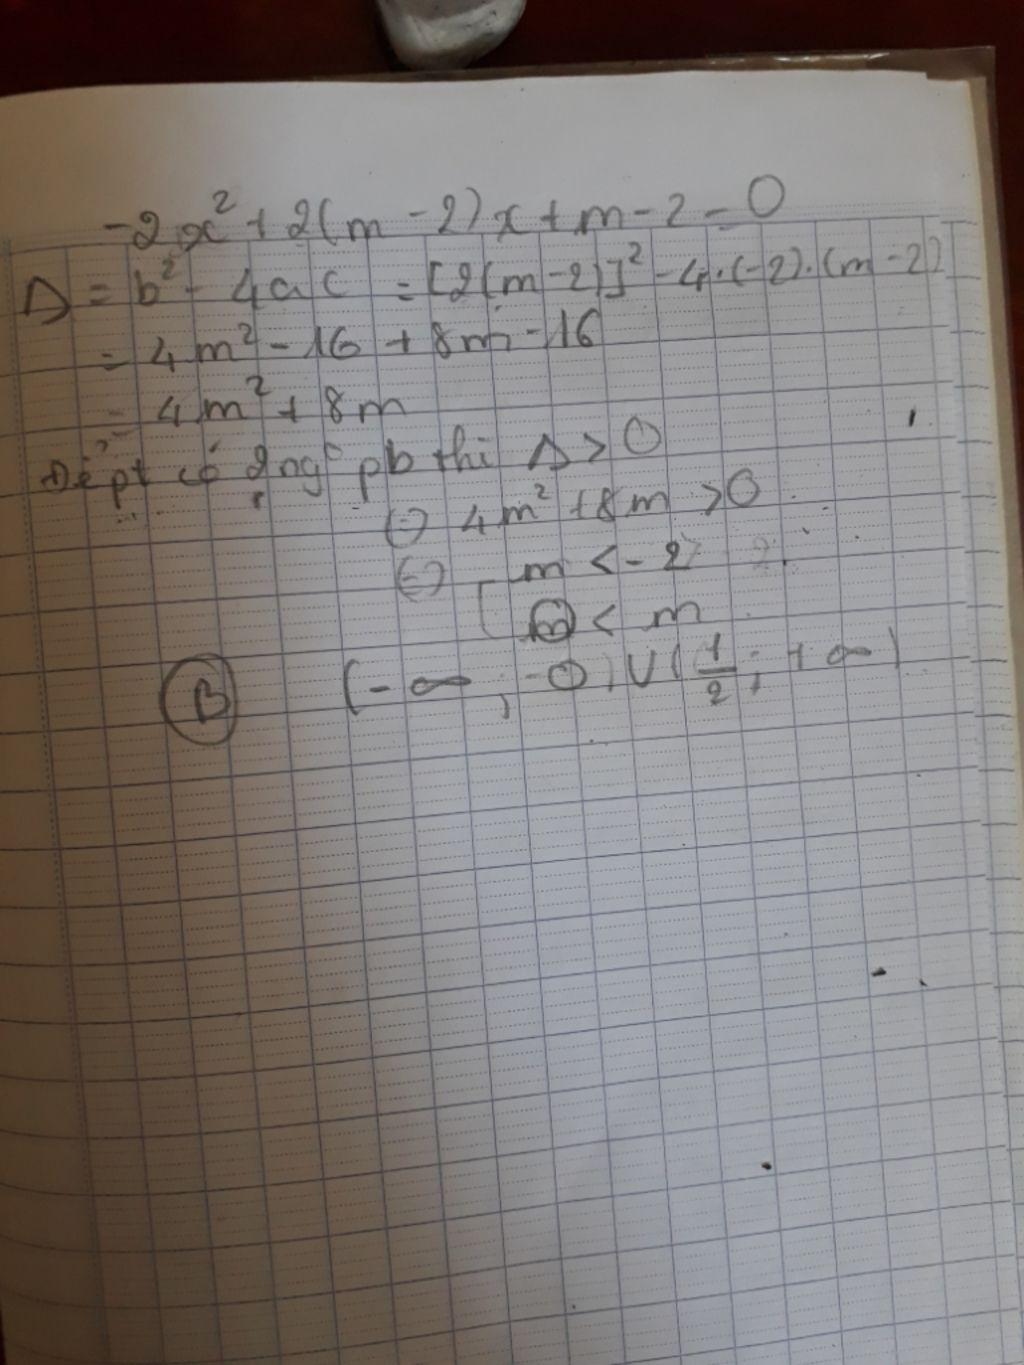 -2x² + 2(m - 2)x + m - 2 = 0
Δ = b² - 4ac = [2(m-2)]² - 4.(-2).(m-2)
= 4m² - 16 + 8m - 16
= 4m² + 8m
Để pt có 2 ngº pb thì Δ > 0
(=) 4m² + 8m > 0
(=) [ m < -2
< m
B (-∞; -0) U (1/2; +∞)